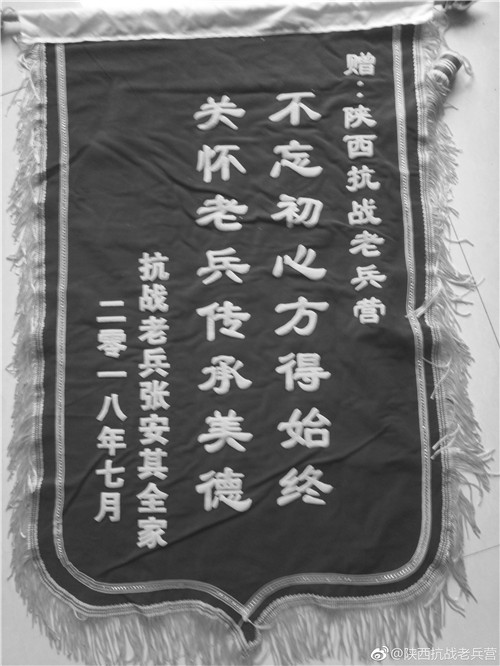 赠：陕西抗战老兵营
不忘初心方得始终
关怀老兵传承美德
抗战老兵张安其全家
二零一八年七月
@陕西抗战老兵营